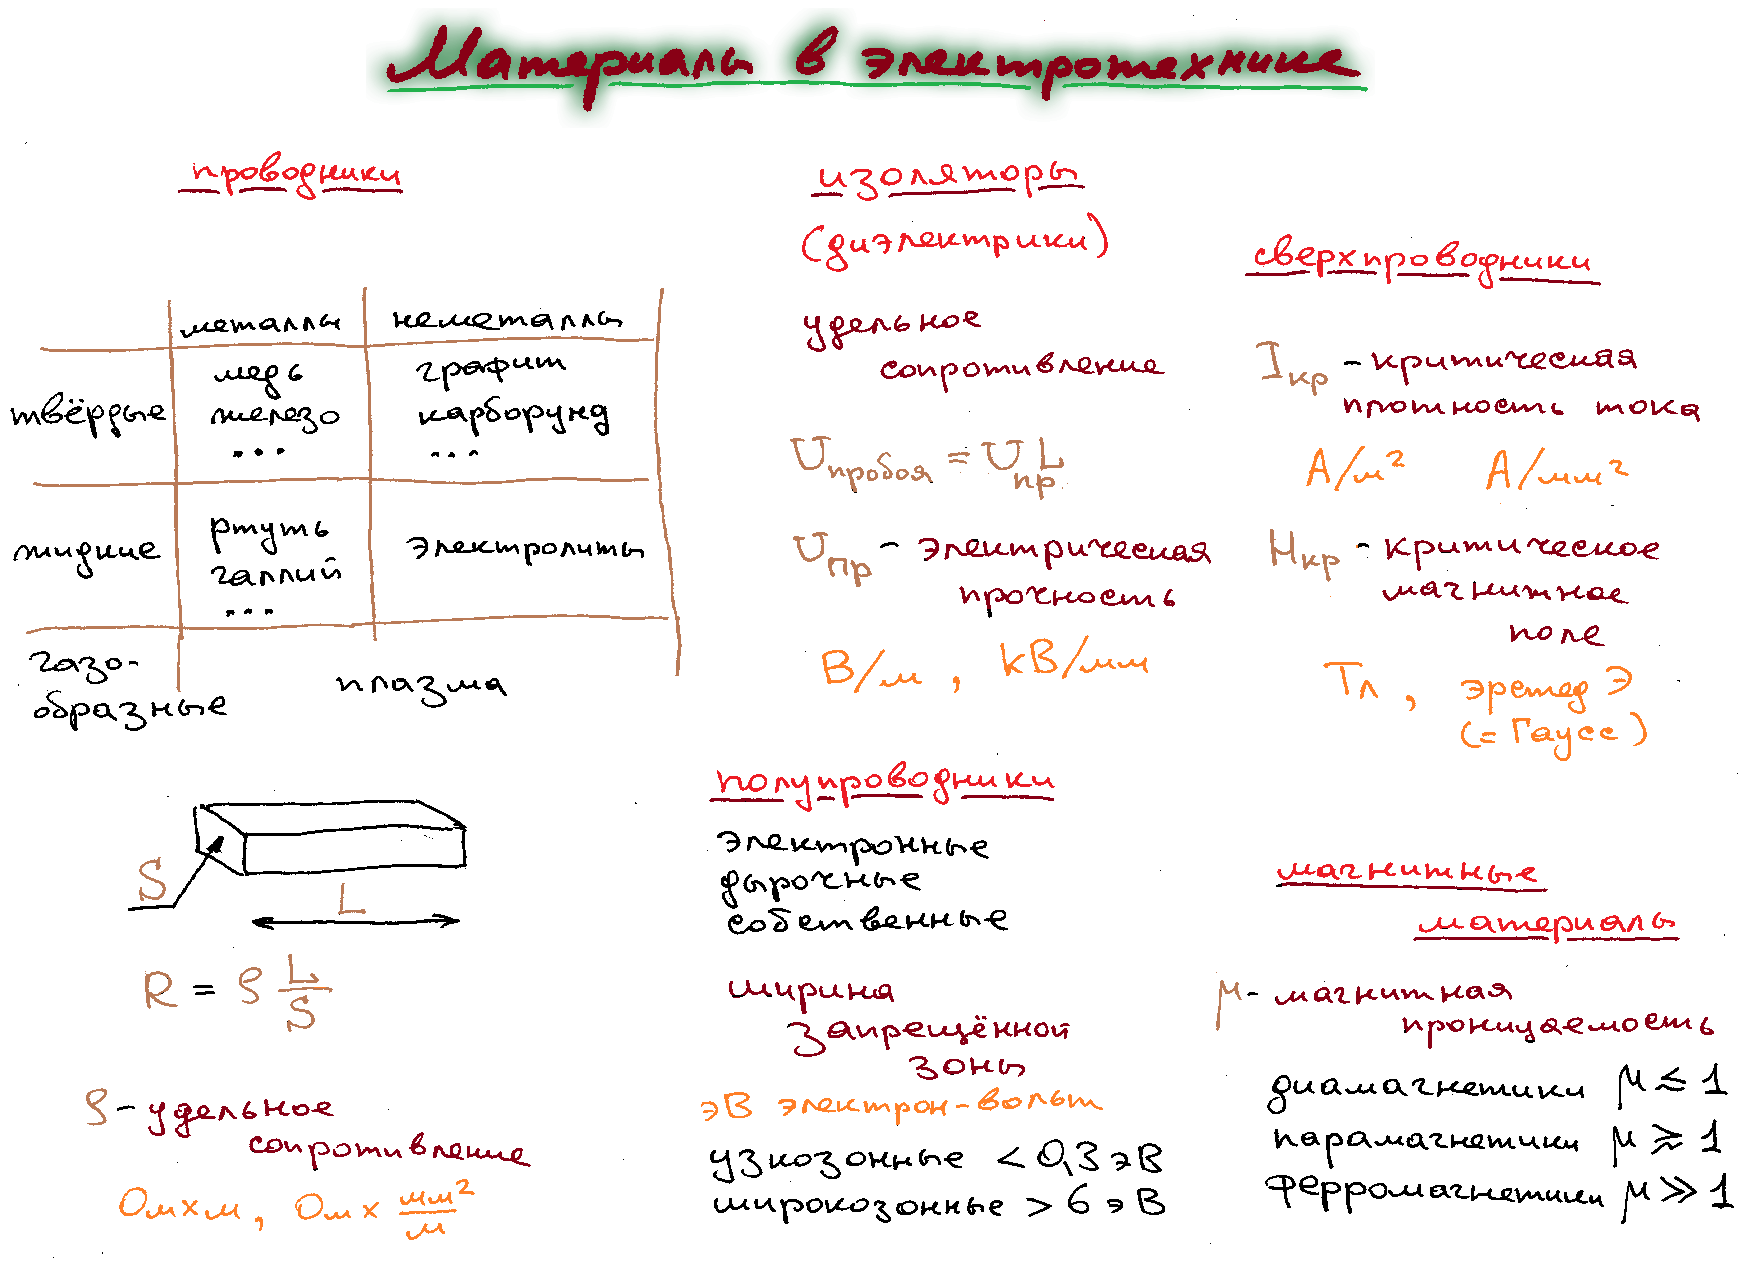 Материалы в электротехнике
проводники
металлы неметаллы
твёрдые медь железо ... графит карборунд ...
жидкие ртуть галлий ... электролиты
газо-
образные плазма
S
L
R = ρ L/S
ρ - удельное
сопротивление
Ом×м, Ом× мм²/м
изоляторы
(диэлектрики)
удельное
сопротивление
Uпробоя = Uпр L
Uпр - электрическая
прочность
В/м, кВ/мм
полупроводники
электронные
дырочные
собственные
ширина
запрещённой
зоны
эВ электрон-вольт
узкозонные < 0,3 эВ
широкозонные > 6 эВ
сверхпроводники
Iкр - критическая
плотность тока
А/м² А/мм²
Hкр - критическое
магнитное
поле
Тл, эрстед Э
(= Гаусс)
магнитные
материалы
μ - магнитная
проницаемость
диамагнетики μ ≲ 1
парамагнетики μ ≳ 1
ферромагнетики μ ≫ 1